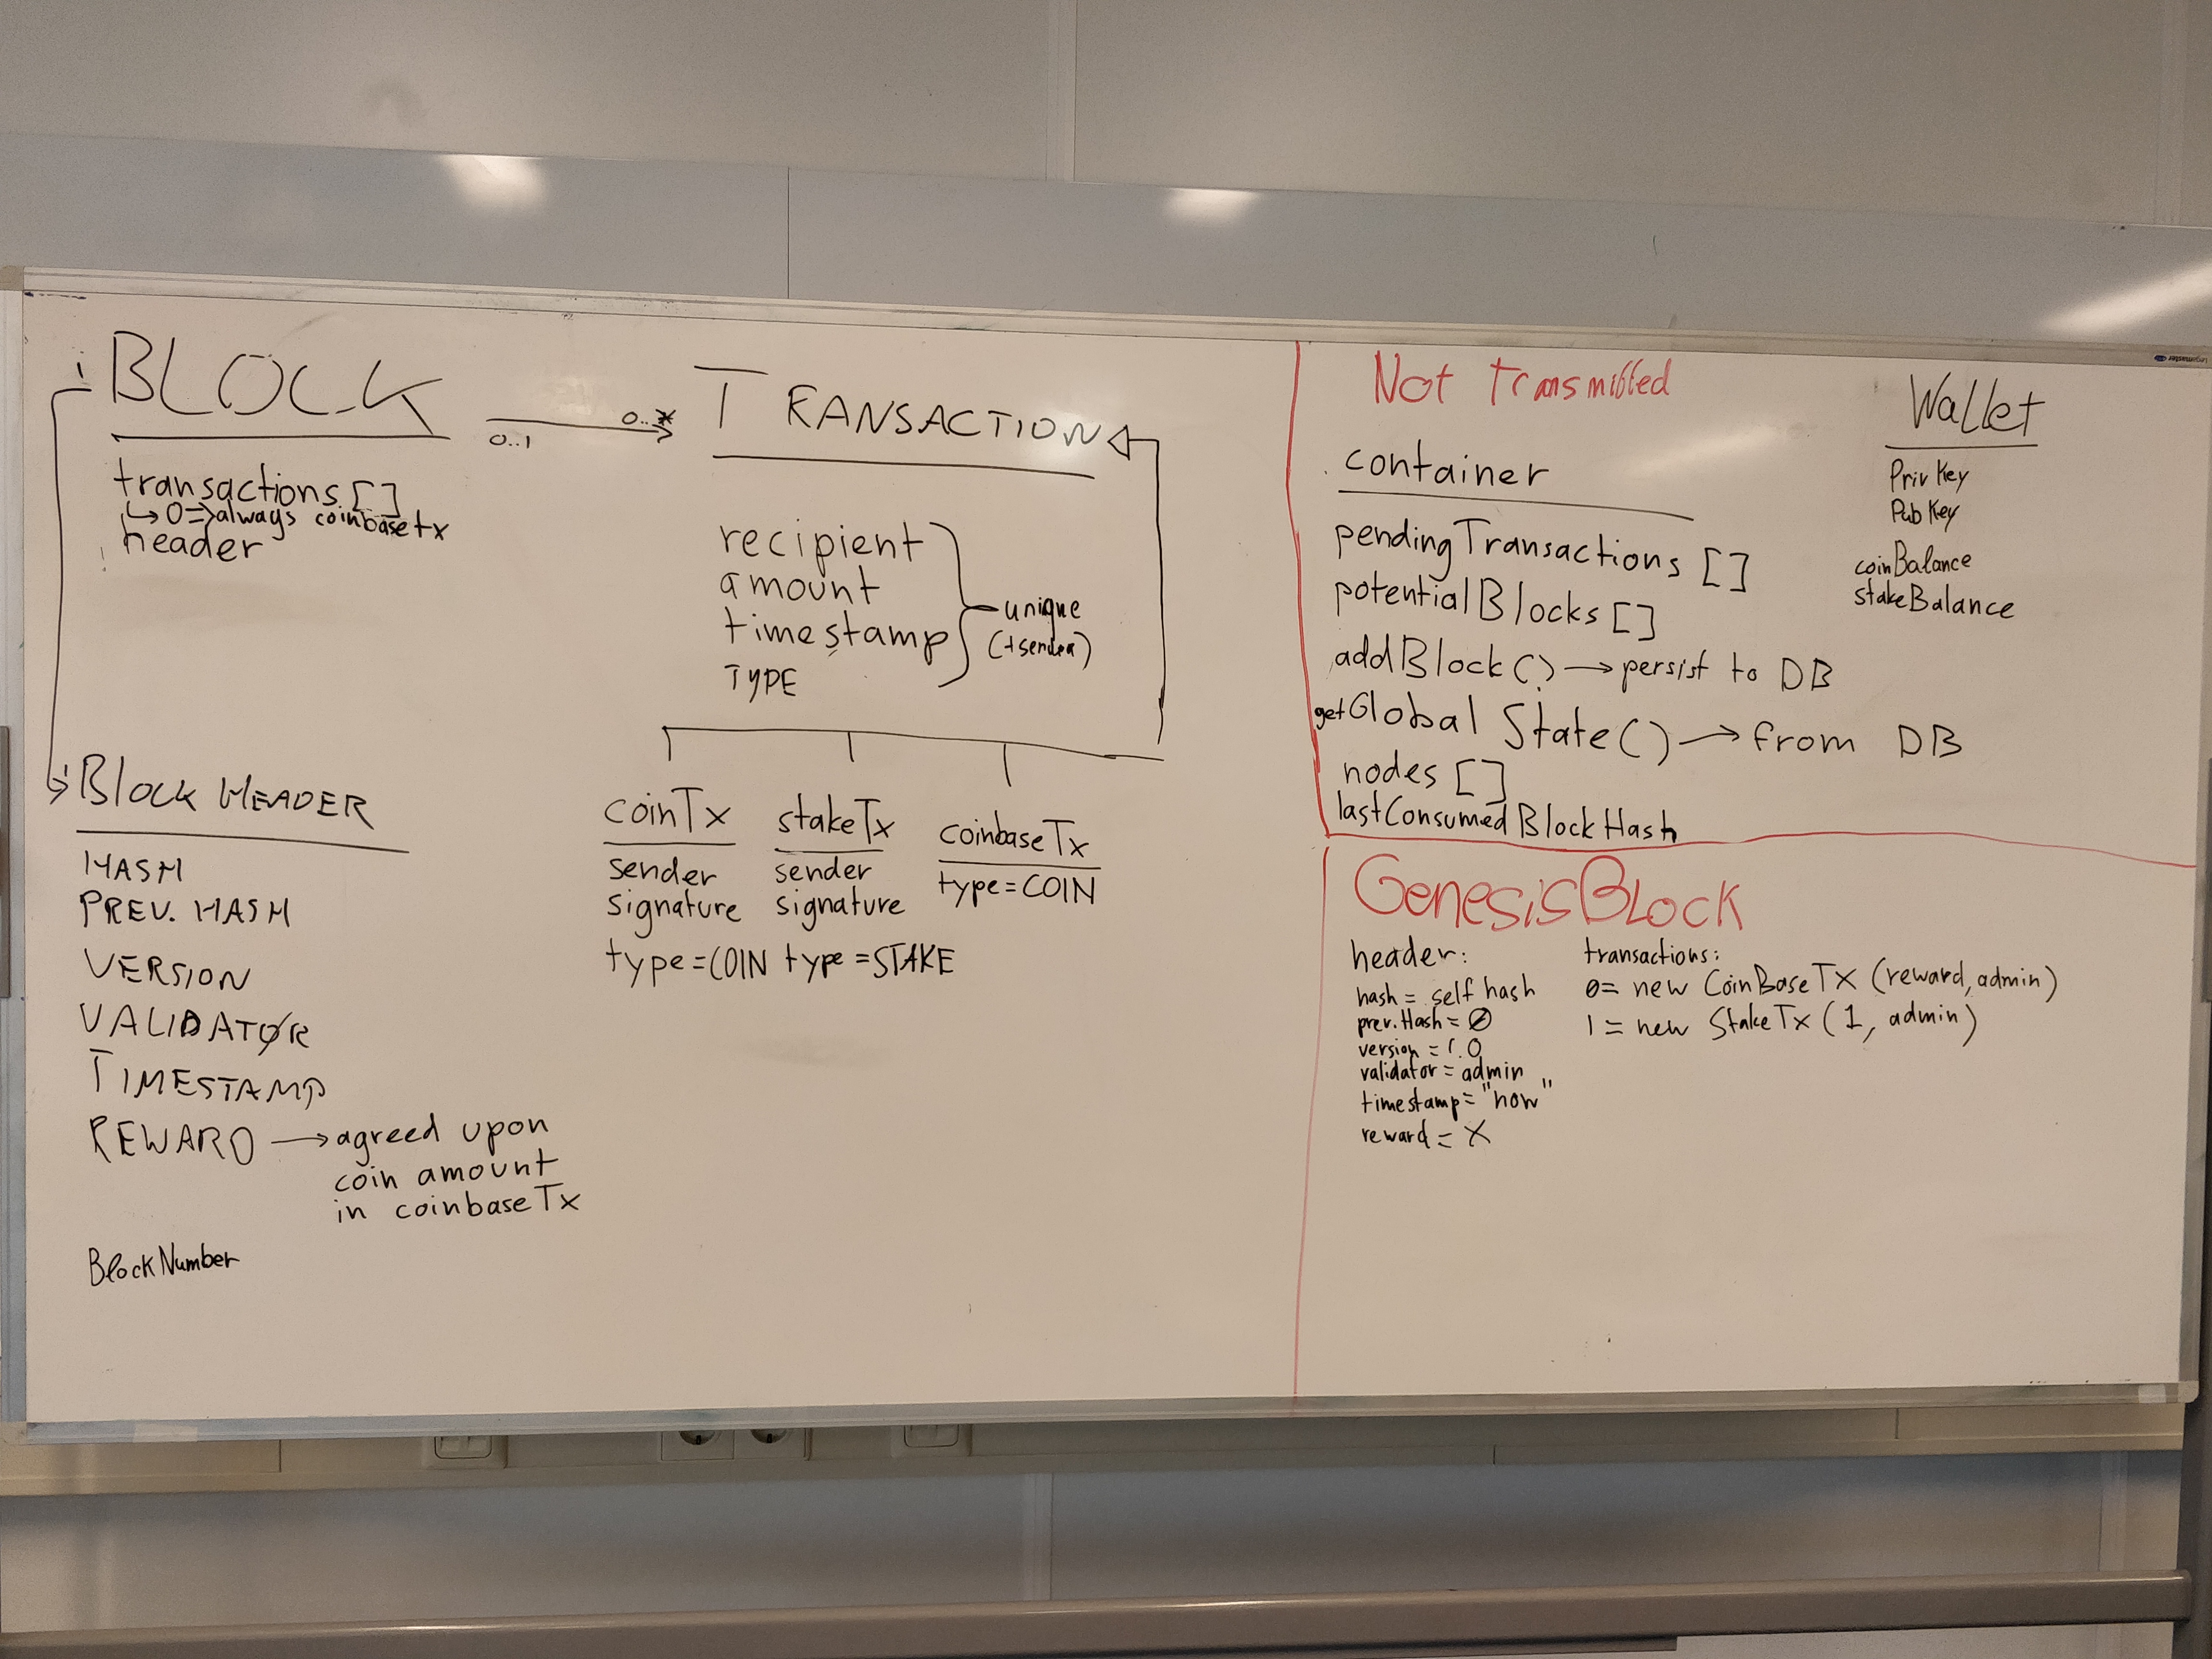 BLOCK
transactions []
↳ 0 => always coinbase tx
header
0..1
0..*
TRANSACTION
recipient
amount
timestamp
TYPE
unique
(+sender)
BLOCK HEADER
HASH
PREV. HASH
VERSION
VALIDATOR
TIMESTAMP
REWARD → agreed upon
coin amount
in coinbase Tx
BlockNumber
coinTx
sender
signature
type=COIN
stakeTx
sender
signature
type=STAKE
coinbase Tx
type=COIN
Not Transmitted
container
pendingTransactions []
potentialBlocks []
addBlock() → persist to DB
getGlobal State() → from DB
nodes []
lastConsumedBlockHash
Wallet
Priv Key
Pub Key
coinBalance
stakeBalance
GenesisBlock
header:
hash = self hash
prev.Hash = Ø
version = 1.0
validator = admin
timestamp = "now"
reward = X
transactions:
0= new CoinBaseTX (reward, admin)
1 = new StakeTx (1, admin)
Legamaster